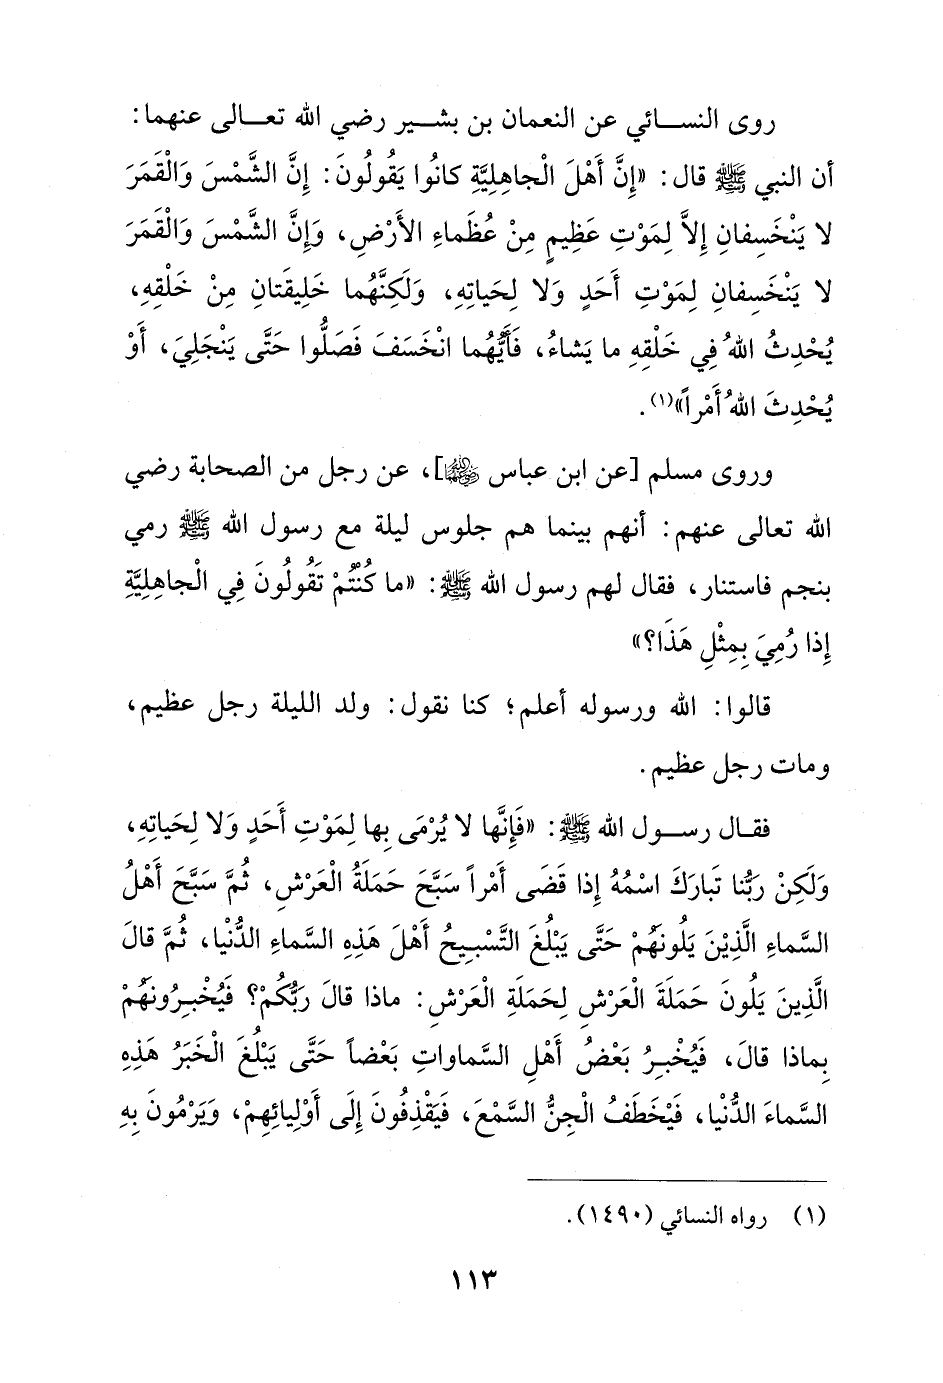 روى النسائي عن النعمان بن بشير رضي الله تعالى عنهما:
أن النبي ﷺ قال: «إِنَّ أَهْلَ الْجاهِلِيَّةِ كانُوا يَقُولُونَ: إِنَّ الشَّمْسَ وَالْقَمَرَ
لا يَنْخَسِفانِ إِلاَّ لِمَوْتِ عَظِيمٍ مِنْ عُظَماءِ الأَرْضِ، وَإِنَّ الشَّمْسَ وَالْقَمَرَ
لا يَنْخَسِفانِ لِمَوْتِ أَحَدٍ وَلا لِحَياتِهِ، وَلَكِنَّهُما خَلِيقَتانِ مِنْ خَلْقِهِ،
يُحْدِثُ اللهُ فِي خَلْقِهِ ما يَشاءُ، فَأَيُّهُما انْخَسَفَ فَصَلُّوا حَتَّى يَنْجَلِيَ، أَوْ
يُحْدِثَ اللهُ أَمْراً»(١).
وروى مسلم [عن ابن عباس رضي الله عنهما]، عن رجل من الصحابة رضي
الله تعالى عنهم: أنهم بينما هم جلوس ليلة مع رسول الله ﷺ رمي
بنجم فاستنار، فقال لهم رسول الله ﷺ: «ما كُنْتُمْ تَقُولُونَ فِي الْجاهِلِيَّةِ
إِذا رُمِيَ بِمِثْلِ هَذَا؟»
قالوا: الله ورسوله أعلم؛ كنا نقول: ولد الليلة رجل عظيم،
ومات رجل عظيم.
فقال رسول الله ﷺ: «فَإِنَّها لا يُرْمَى بِها لِمَوْتِ أَحَدٍ وَلا لِحَياتِهِ،
وَلَكِنْ رَبُّنا تَبارَكَ اسْمُهُ إِذا قَضَى أَمْراً سَبَّحَ حَمَلَةُ الْعَرْشِ، ثُمَّ سَبَّحَ أَهْلُ
السَّماءِ الَّذِيْنَ يَلُونَهُمْ حَتَّى يَبْلُغَ التَّسْبِيحُ أَهْلَ هَذِهِ السَّماءِ الدُّنْيا، ثُمَّ قالَ
الَّذِينَ يَلُونَ حَمَلَةَ الْعَرْشِ لِحَمَلَةِ الْعَرْشِ: ماذا قالَ رَبُّكُمْ؟ فَيُخْبِرُونَهُمْ
بِماذا قالَ، فَيُخْبِرُ بَعْضُ أَهْلِ السَّماواتِ بَعْضاً حَتَّى يَبْلُغَ الْخَبَرُ هَذِهِ
السَّماءَ الدُّنْيا، فَيَخْطَفُ الْجِنُّ السَّمْعَ، فَيَقْذِفُونَ إِلَى أَوْلِيائِهِمْ، وَيَرْمُونَ بِهِ
(١) رواه النسائي (١٤٩٠).
١١٣